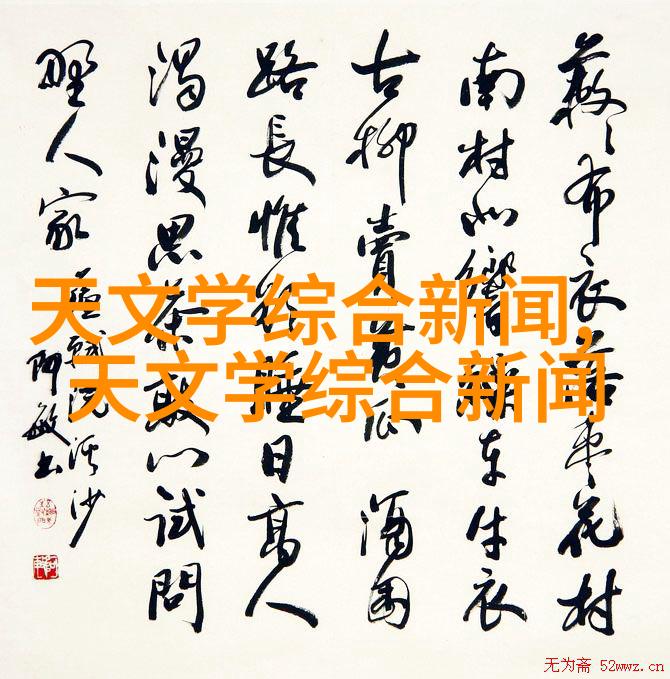 蔌〻布衣落枣花村
南村北響车牛衣
古柳賣瓜酒困
路長惟睡日高人
渴漫思茶敲门试問
野人家
浣溪沙
阿敏书
天文学综合新闻,
天文学综合新闻
无为斋 52wwz.cn